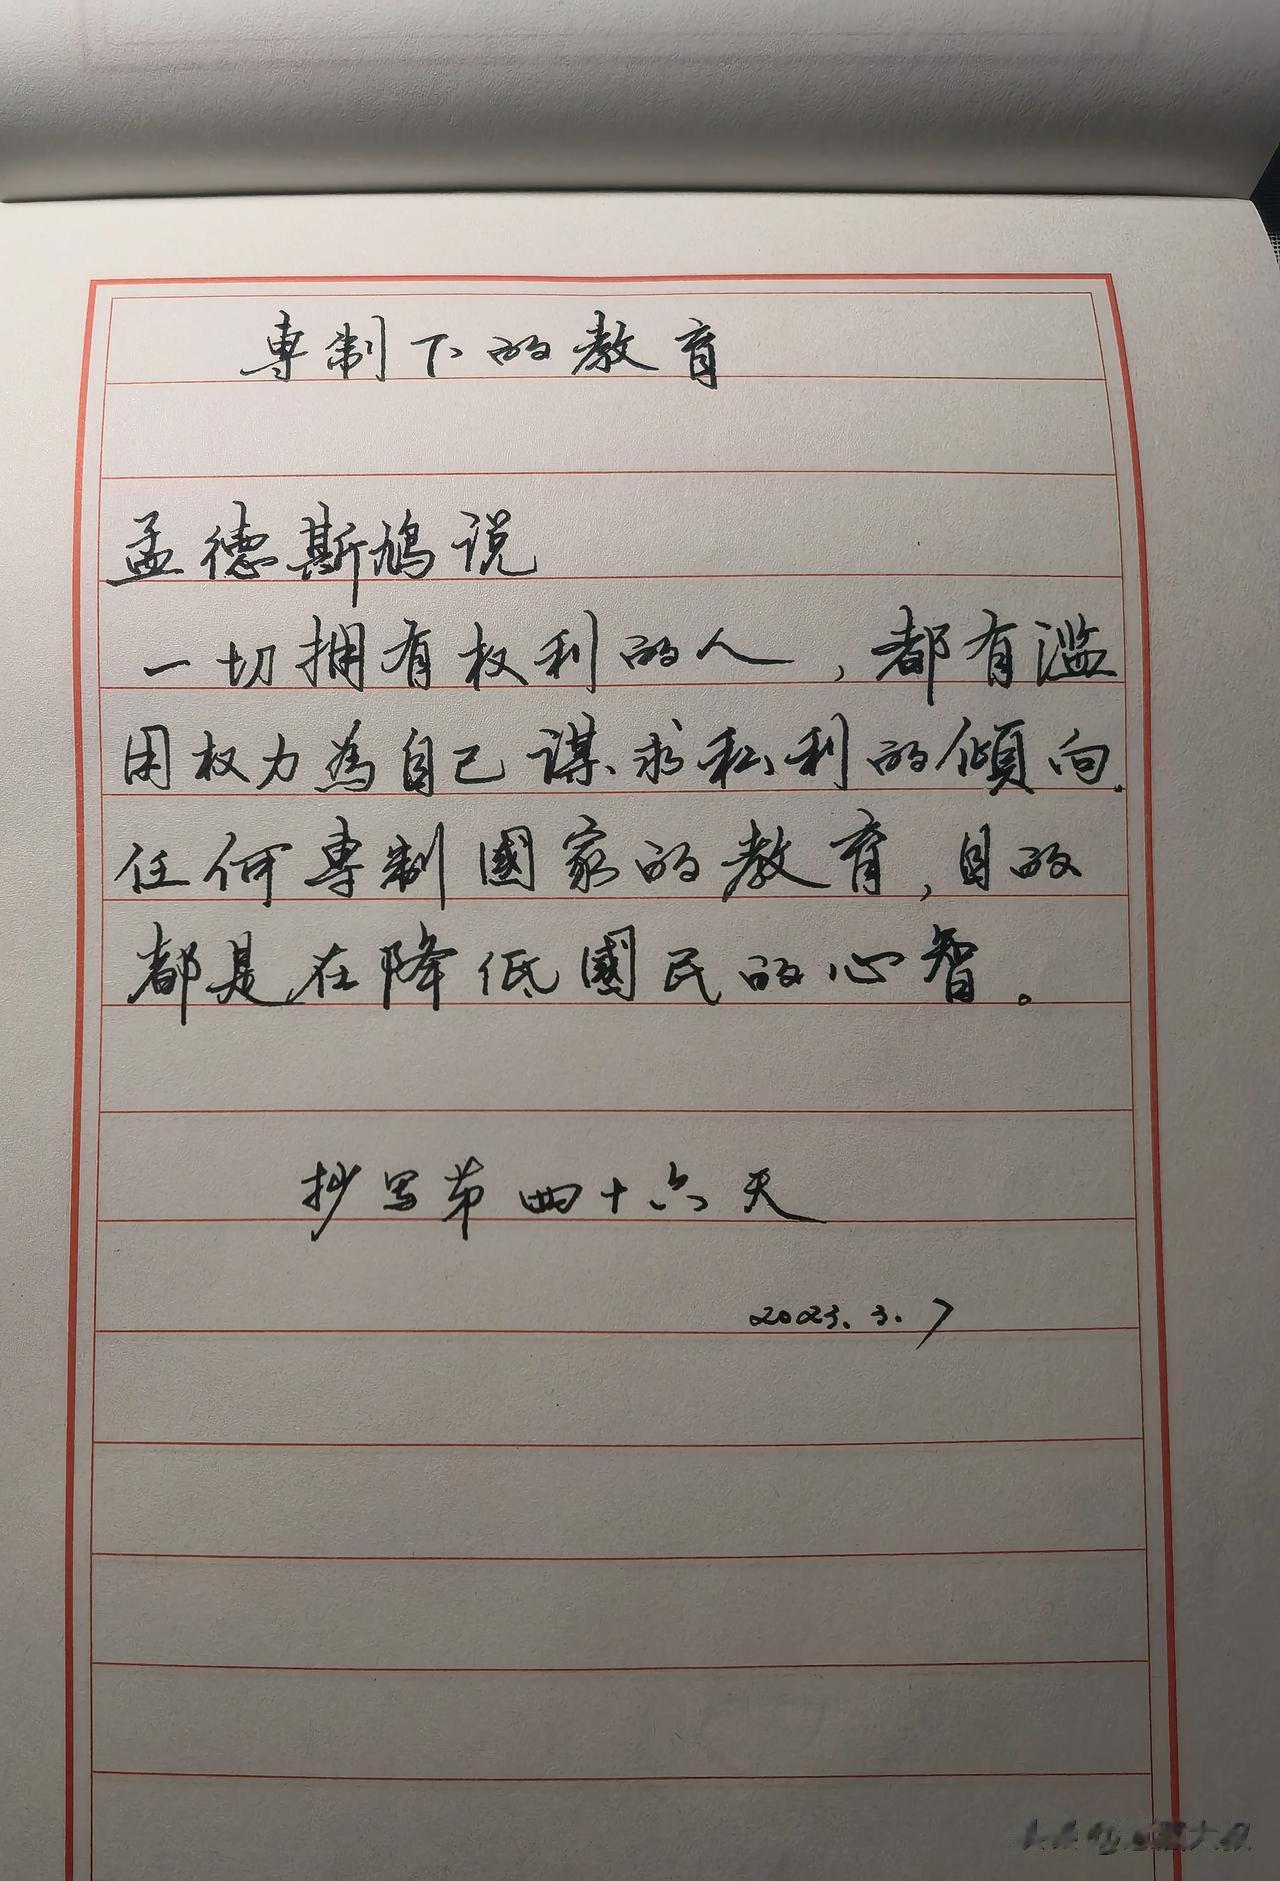 専制下的教育
孟德斯鳩说
一切拥有权利的人，都有滥
用权力為自己谋求私利的傾向.
任何専制國家的教育，目的
都是在降低國民的心智。
抄写第四十六天
2023.3.7